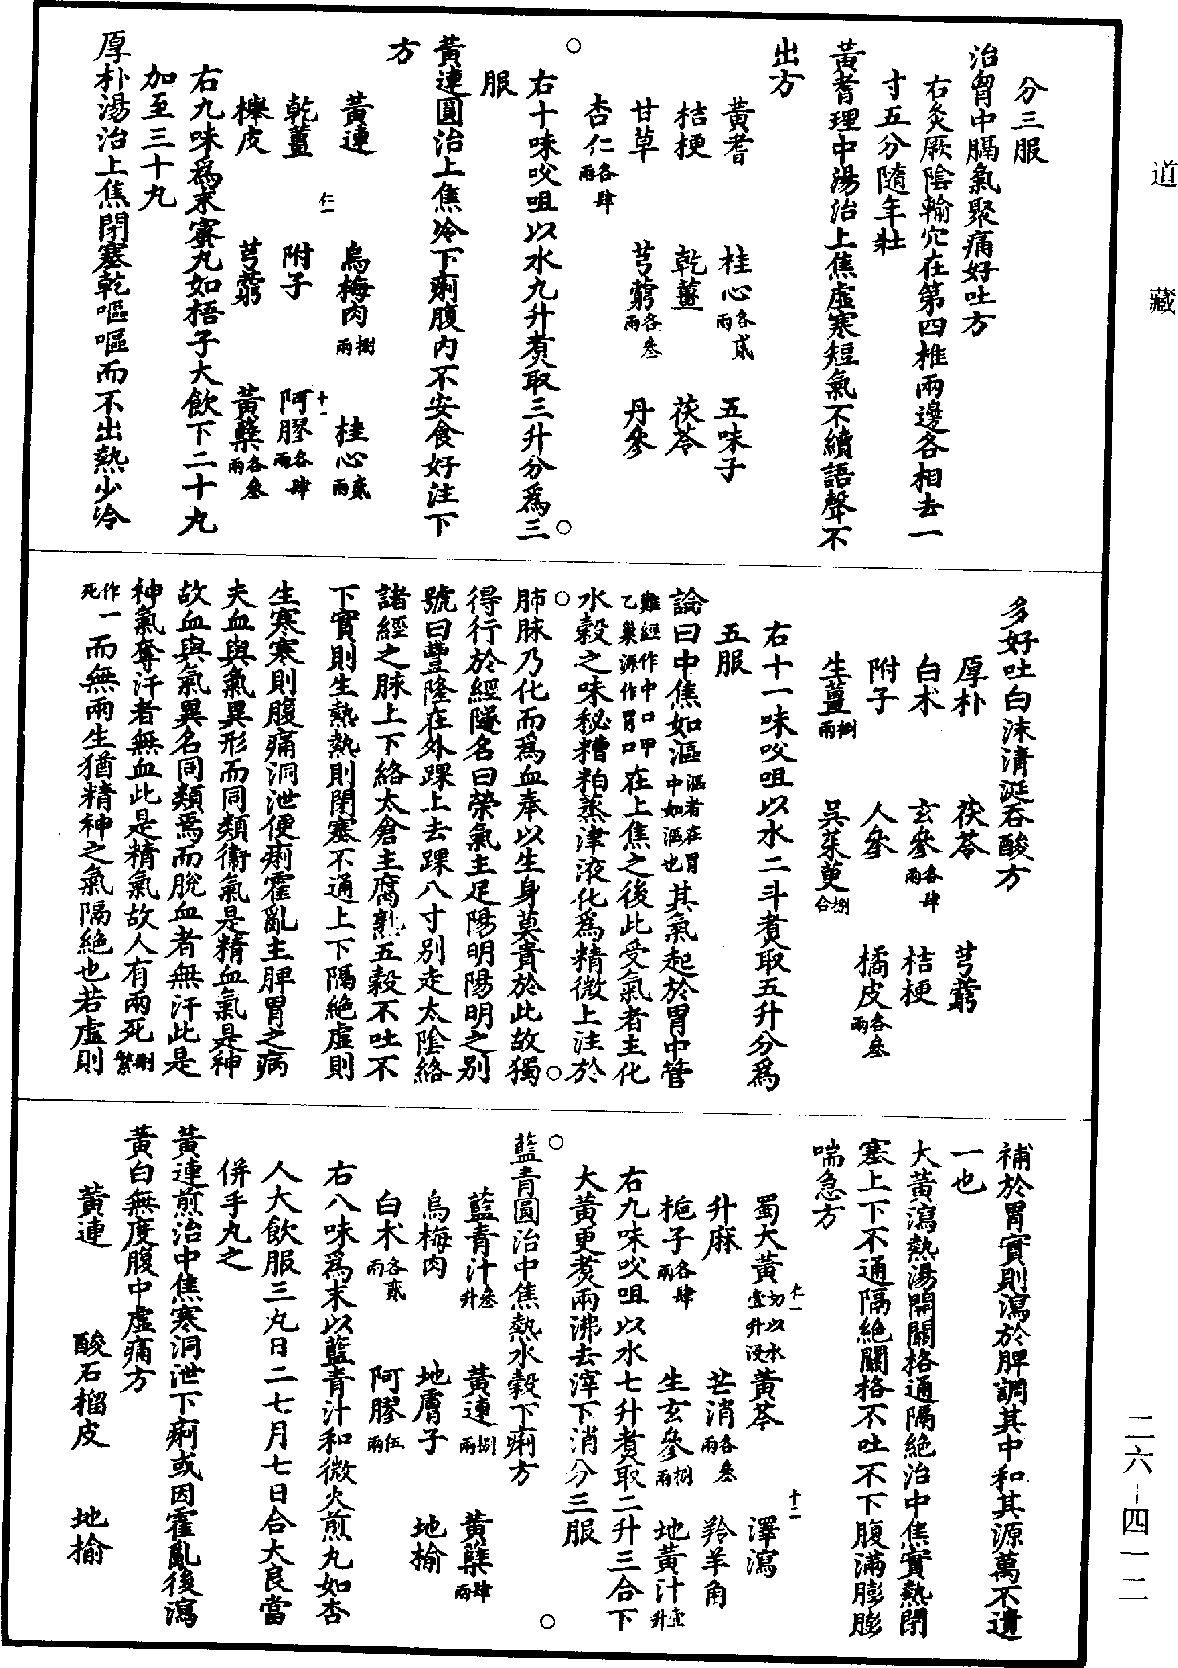 道藏
分三服
治胷中膈氣聚痛好吐方
右灸厥陰輸穴在第四椎兩邊各相去一
寸五分隨年壯
黃耆理中湯治上焦虛寒短氣不續語聲不
出方
黃耆 桂心各貳兩 五味子
桔梗 乾薑 茯苓
甘草 芎藭各叁兩 丹參
杏仁各肆兩
右十味㕮咀以水九升煑取三升分爲三
服
黃連圓治上焦冷下痢腹內不安食好注下
方
黃連 烏梅肉捌兩 桂心貳兩
仁一 十一
乾薑 附子 阿膠各肆兩
櫸皮 芎藭 黃蘗各叁兩
右九味爲末蜜丸如梧子大飲下二十丸
加至三十丸
厚朴湯治上焦閉塞乾嘔嘔而不出熱少冷
多好吐白沫清涎吞酸方
厚朴 茯苓 芎藭
白术 玄參各肆兩 桔梗
附子 人參 橘皮各叁兩
生薑捌兩 吳茱萸捌合
右十一味㕮咀以水二斗煑取五升分爲
五服
論曰中焦如漚漚者在胃中如漚也其氣起於胃中管
難經作中口甲乙巢源作胃口在上焦之後此受氣者主化
水穀之味秘糟粕蒸津液化爲精微上注於
肺脉乃化而爲血奉以生身莫貴於此故獨
得行於經隧名曰榮氣主足陽明陽明之別
號曰豐隆在外踝上去踝八寸別走太陰絡
諸經之脉上下絡太倉主腐熟五穀不吐不
下實則生熱熱則閉塞不通上下隔絶虛則
生寒寒則腹痛洞泄便痢霍亂主脾胃之病
夫血與氣異形而同類衛氣是精血氣是神
故血與氣異名同類焉而脫血者無汗此是
神氣奪汗者無血此是精氣故人有兩死刪繁
作死一而無兩生猶精神之氣隔絶也若虛則
補於胃實則瀉於脾調其中和其源萬不遺
一也
大黃瀉熱湯開關格通隔絶治中焦實熱閉
塞上下不通隔絶關格不吐不下腹滿膨膨
喘急方
仁一 十二
蜀大黃切以水壹升浸 黃芩 澤瀉
升麻 芒消各叁兩 羚羊角
梔子各肆兩 生玄參捌兩 地黃汁壹升
右九味㕮咀以水七升煑取二升三合下
大黃更煑兩沸去滓下消分三服
藍青圓治中焦熱水穀下痢方
藍青汁叁升 黃連捌兩 黃蘗肆兩
烏梅肉 地膚子 地榆
白术各貳兩 阿膠伍兩
右八味爲末以藍青汁和微火煎丸如杏
人大飲服三丸日二七月七日合大良當
併手丸之
黃連煎治中焦寒洞泄下痢或因霍亂後瀉
黃白無度腹中虛痛方
黃連 酸石榴皮 地榆
二六－四一二